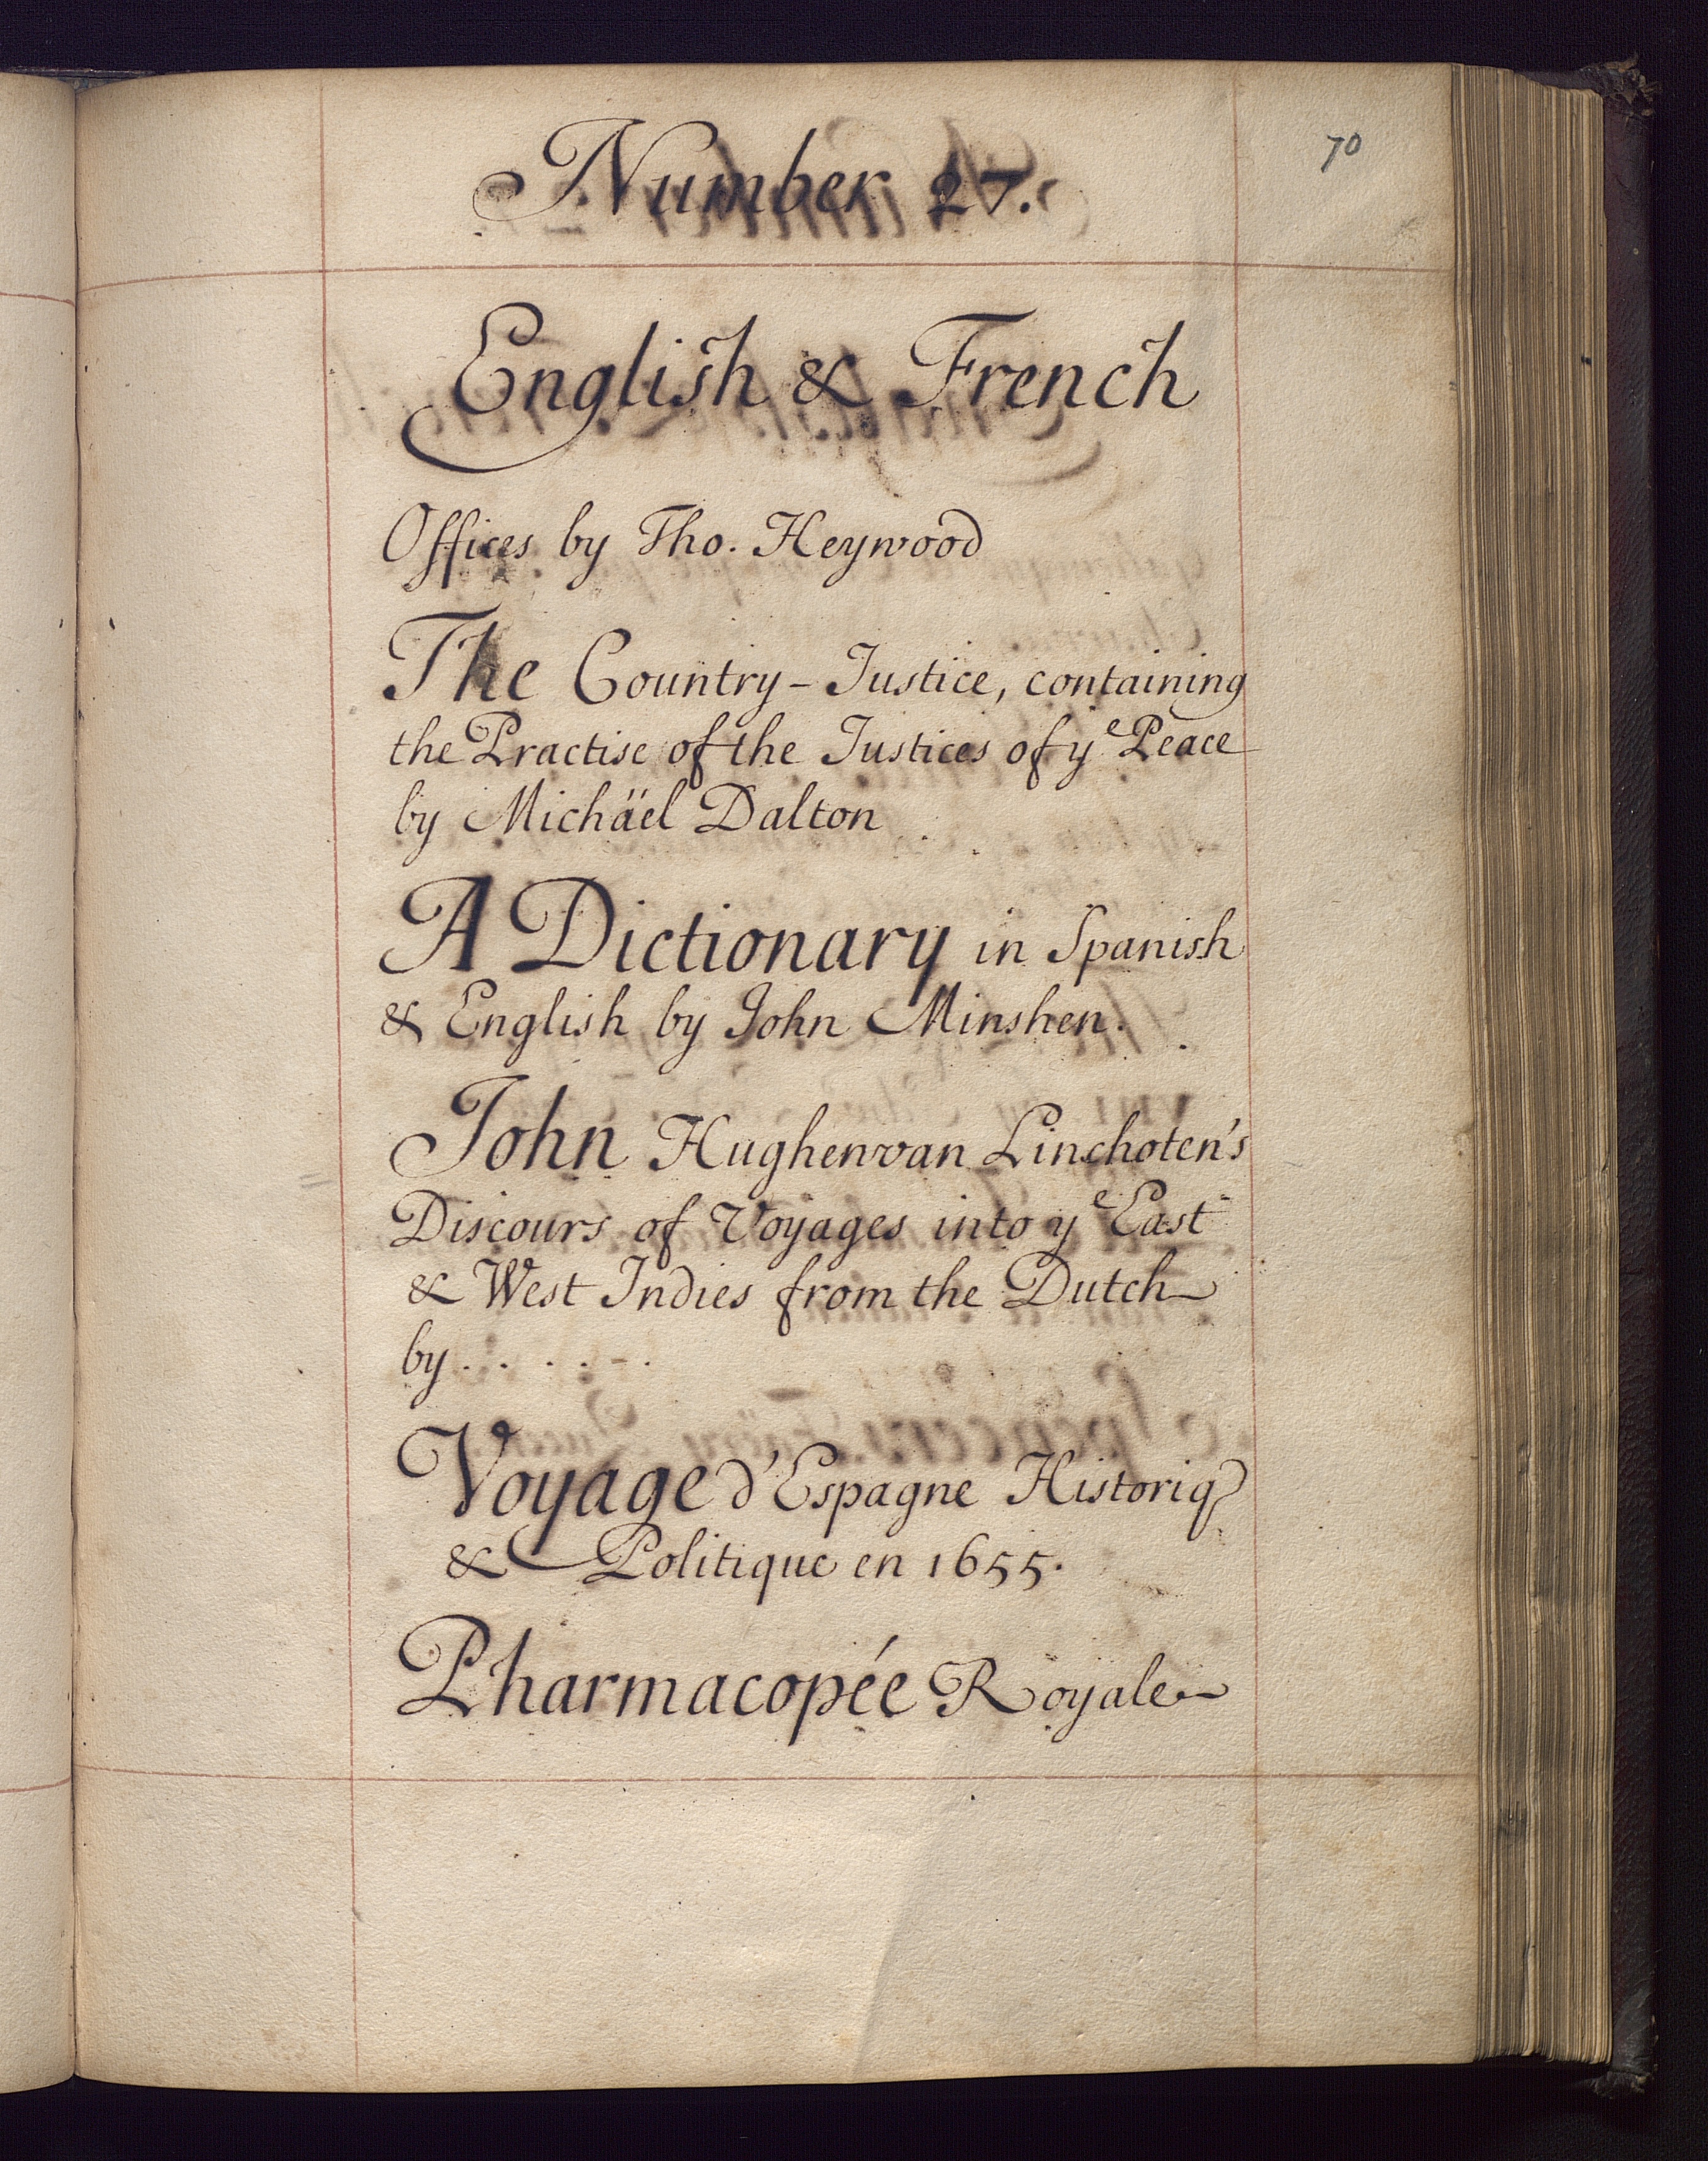 70
Number 27.
English & French
Offices by Tho. Heywood
The Country-Justice, containing
the Practise of the Justices of yᵉ Peace
by Michäel Dalton
A Dictionary in Spanish
& English by John Minshen.
John Hughenvan Linschoten's
Discours of Voyages into yᵉ East
& West Indies from the Dutch
by . . . . .
Voyage d'Espagne Historiq
& Politique en 1655.
Pharmacopée Royale